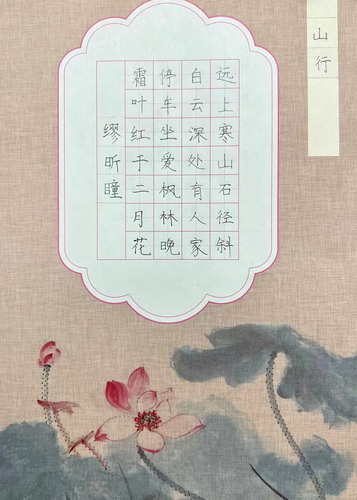 山行
远上寒山石径斜
白云深处有人家
停车坐爱枫林晚
霜叶红于二月花
缪昕瞳